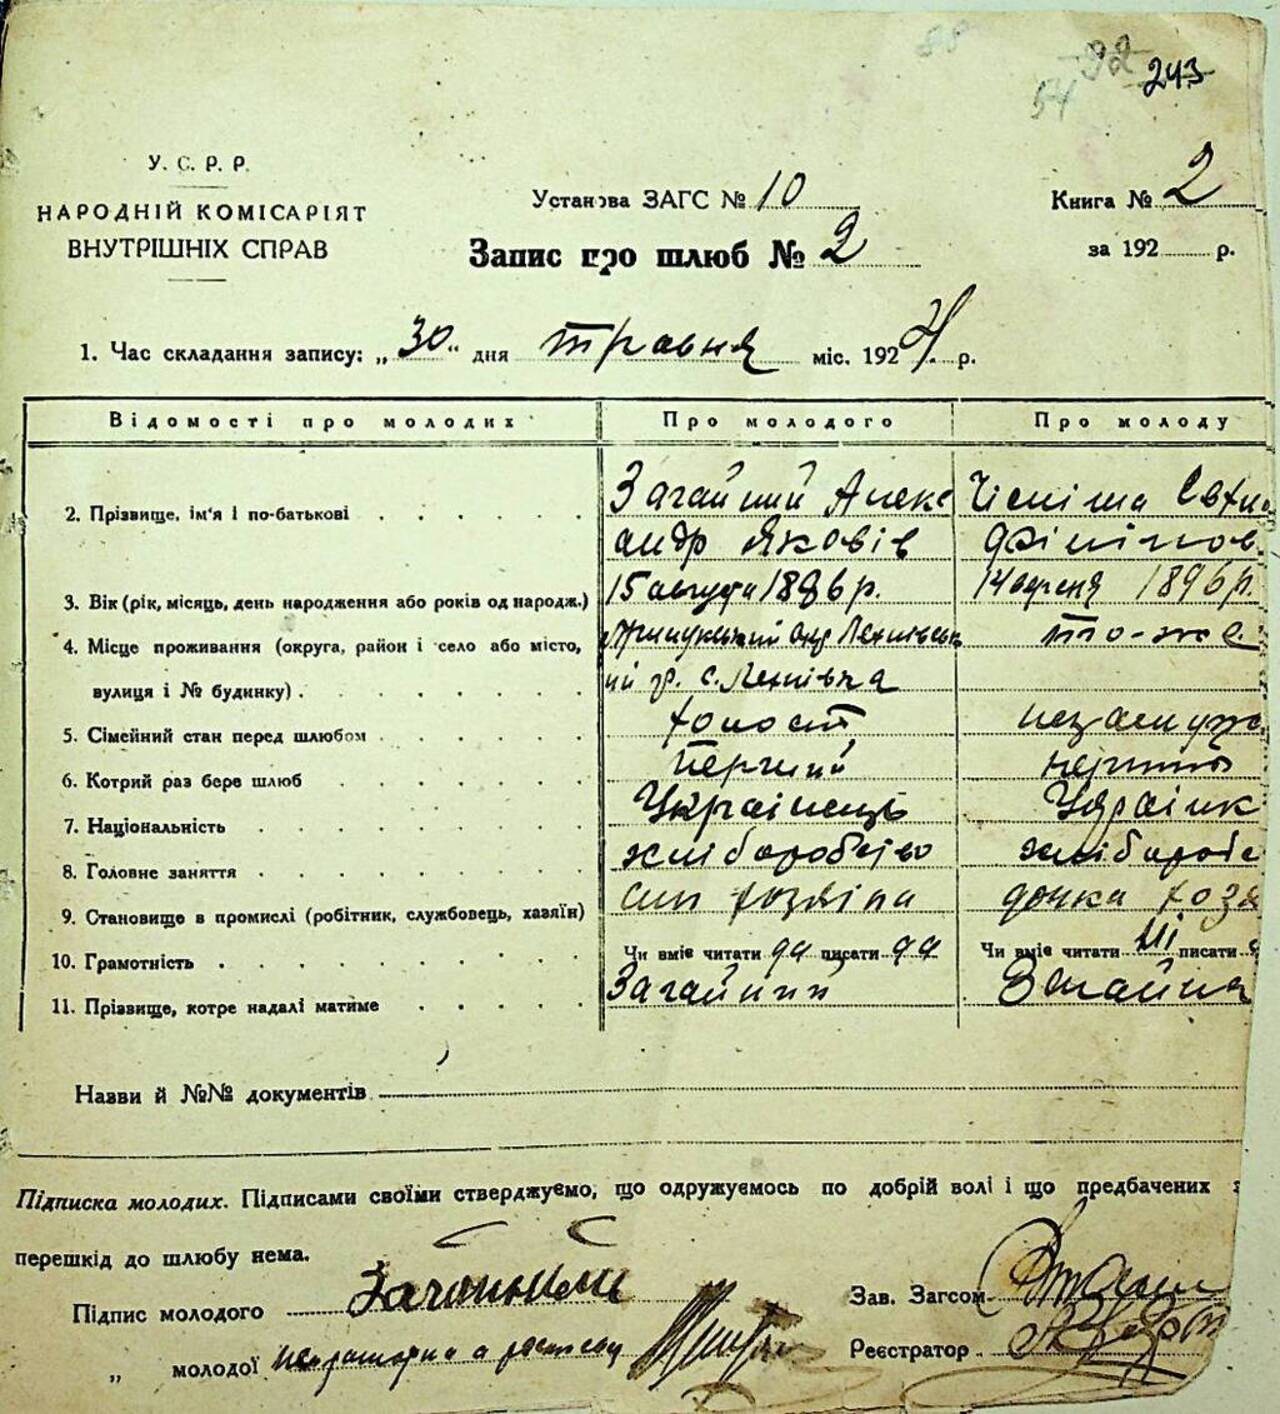 243
У. С. Р. Р.
НАРОДНІЙ КОМІСАРІЯТ
ВНУТРІШНІХ СПРАВ
Установа ЗАГС № 10
Книга № 2
Запис про шлюб № 2
за 192 р.
1. Час складання запису: „30" дня травня міс. 1924 р.
Відомості про молодих Про молодого Про молоду
2. Прізвище, ім'я і по-батькові Загайний Алекс
андр Яковів
3. Вік (рік, місяць, день народження або років од народж.) 15 августа 1896 р. 14 1896 р.
4. Місце проживання (округа, район і село або місто, Прилуцький окр то-же
вулиця і № будинку)
5. Сімейний стан перед шлюбом холост незамуж
6. Котрий раз бере шлюб перший
7. Національність Українець Українк
8. Головне заняття хліборобство хлібороб
9. Становище в промислі (робітник, службовець, хазяїн) син хозяїна дочка хозя
10. Грамотність Чи вміє читати да писати да Чи вміє читати ні писати
11. Прізвище, котре надалі матиме Загайний Загайна
Назви й №№ документів
Підписка молодих. Підписами своїми стверджуємо, що одружуємось по добрій волі і що предбачених з
перешкід до шлюбу нема.
Підпис молодого Загайний Зав. Загсом
„ молодої неграмотна Реєстратор